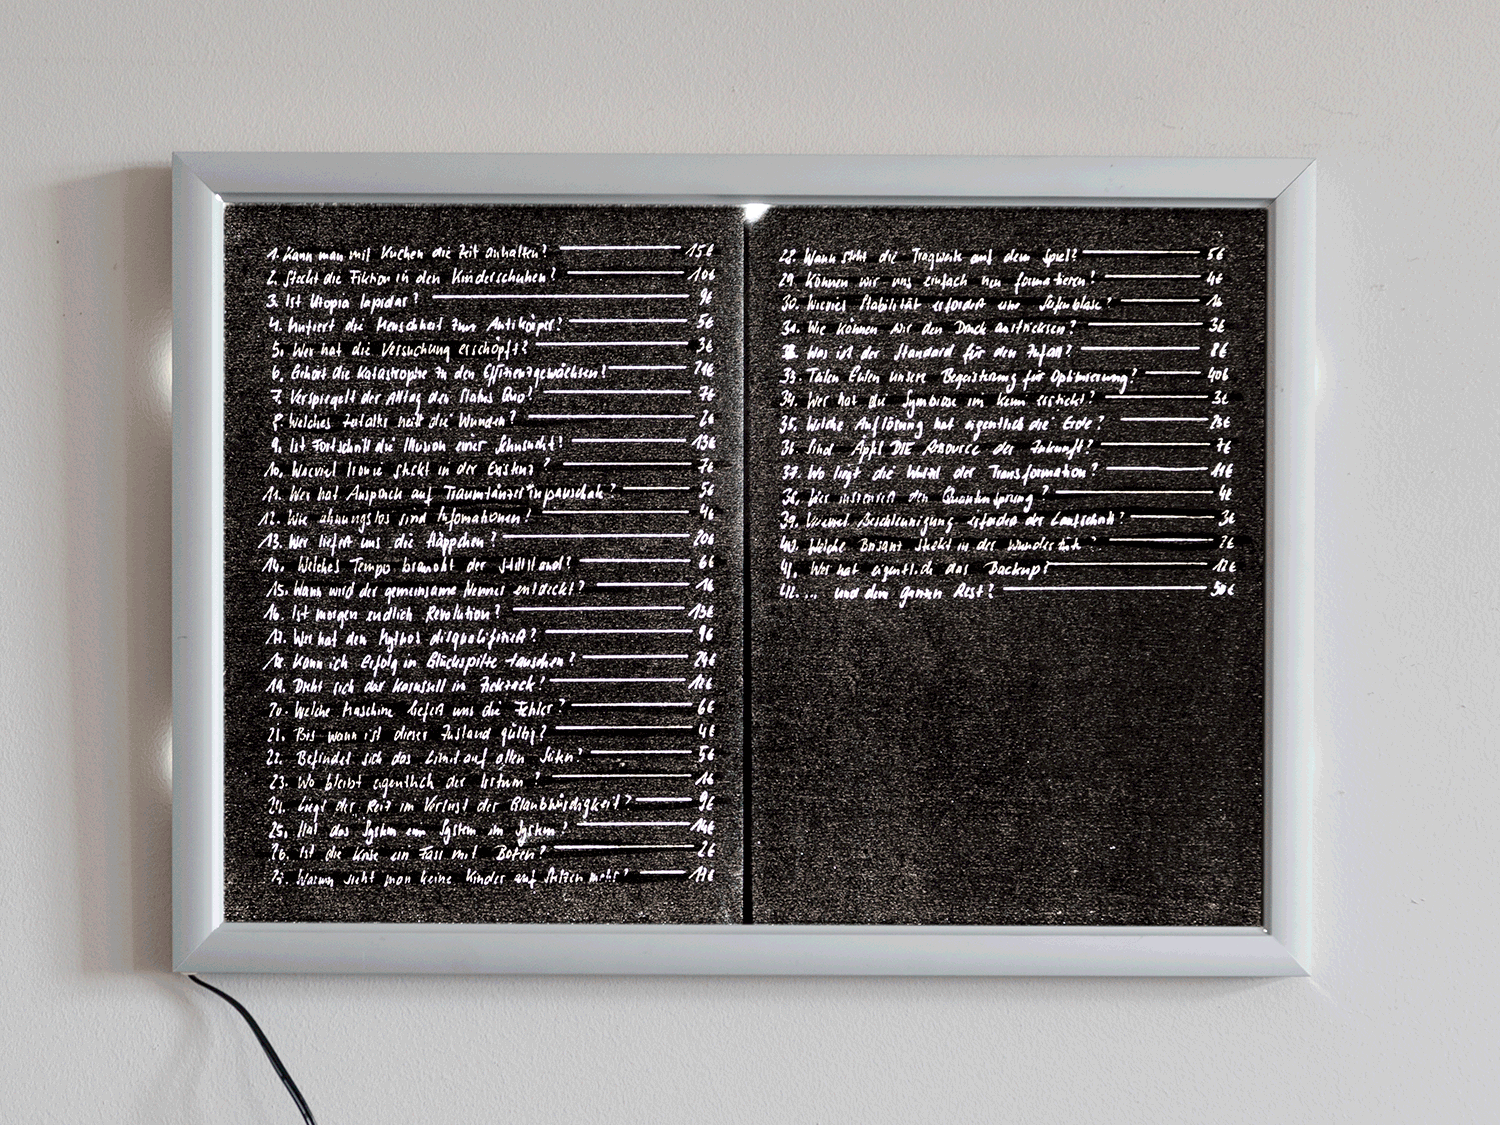 1. Kann man mit Kuchen die Zeit anhalten? 15€
2. Steckt die Fiktion in den Kinderschuhen? 10€
3. Ist Utopia lapidar? 9€
4. Mutiert die Menschheit zum Antikörper? 5€
5. Wer hat die Versuchung erschöpft? 3€
6. Gehört die Katastrophe zu den Effizienzgewächsen?
7. Verspiegelt der Alltag den Status Quo? 7€
8. Welches heilt die Wunden? 2€
9. Ist Fortschritt die Illusion einer Sehnsucht? 13€
10. Wieviel Ironie steckt in der Existenz? 7€
11. Wer hat Anspruch auf Traumtänzer*inpauschale? 5€
12. Wie ahnungslos sind Infomationen? 4€
13. Wer liefert uns die Häppchen? 20€
14. Welches Tempo braucht der Stillstand? 6€
15. Wann wird der gemeinsame Nenner entdeckt? 1€
16. Ist morgen endlich Revolution? 15€
17. Wer hat den Mythos disqualifiziert? 9€
18. Kann ich Erfolg in Glückspilze tauschen? 24€
19. Dreht sich das Karussell im Zickzack? 12€
20. Welche Maschine liefert uns die Fehler? 6€
21. Bis wann ist dieser Zustand gültig? 4€
22. Befindet sich das Limit auf allen Seiten? 5€
23. Wo bleibt eigentlich der Irrtum? 1€
24. Liegt der Reiz im Verlust der Glaubwürdigkeit? 9€
25. Hat das System ein System im System? 14€
26. Ist die Krise ein Fass mit Boten? 2€
27. Warum sieht man keine Kinder auf Stelzen mehr? 11€
28. Wann steht die Tragweite auf dem Spiel? 5€
29. Können wir uns einfach neu formatieren? 4€
30. Wieviel Stabilität erfordert eine Seifenblase? 1€
31. Wie können wir den Druck austricksen? 3€
Was ist der Standard für den Zufall? 8€
33. Teilen Eulen unsere Begeisterung für Optimierung? 40€
34. Wer hat die Symbiose im Keim erstickt? 3€
35. Welche Auflösung hat eigentlich die Erde?
36. Sind Apps DIE Ressource der Zukunft? 7€
37. Wo liegt die Wurzel der Transformation? 11€
38. Wer inszeniert den Quantensprung? 4€
39. Wieviel Beschleunigung erfordert der Laufschritt? 3€
40. Welche Brisanz steckt in der Wundertüte? 2€
41. Wer hat eigentlich das Backup? 12€
42. ... und dem ganzen Rest? 50€